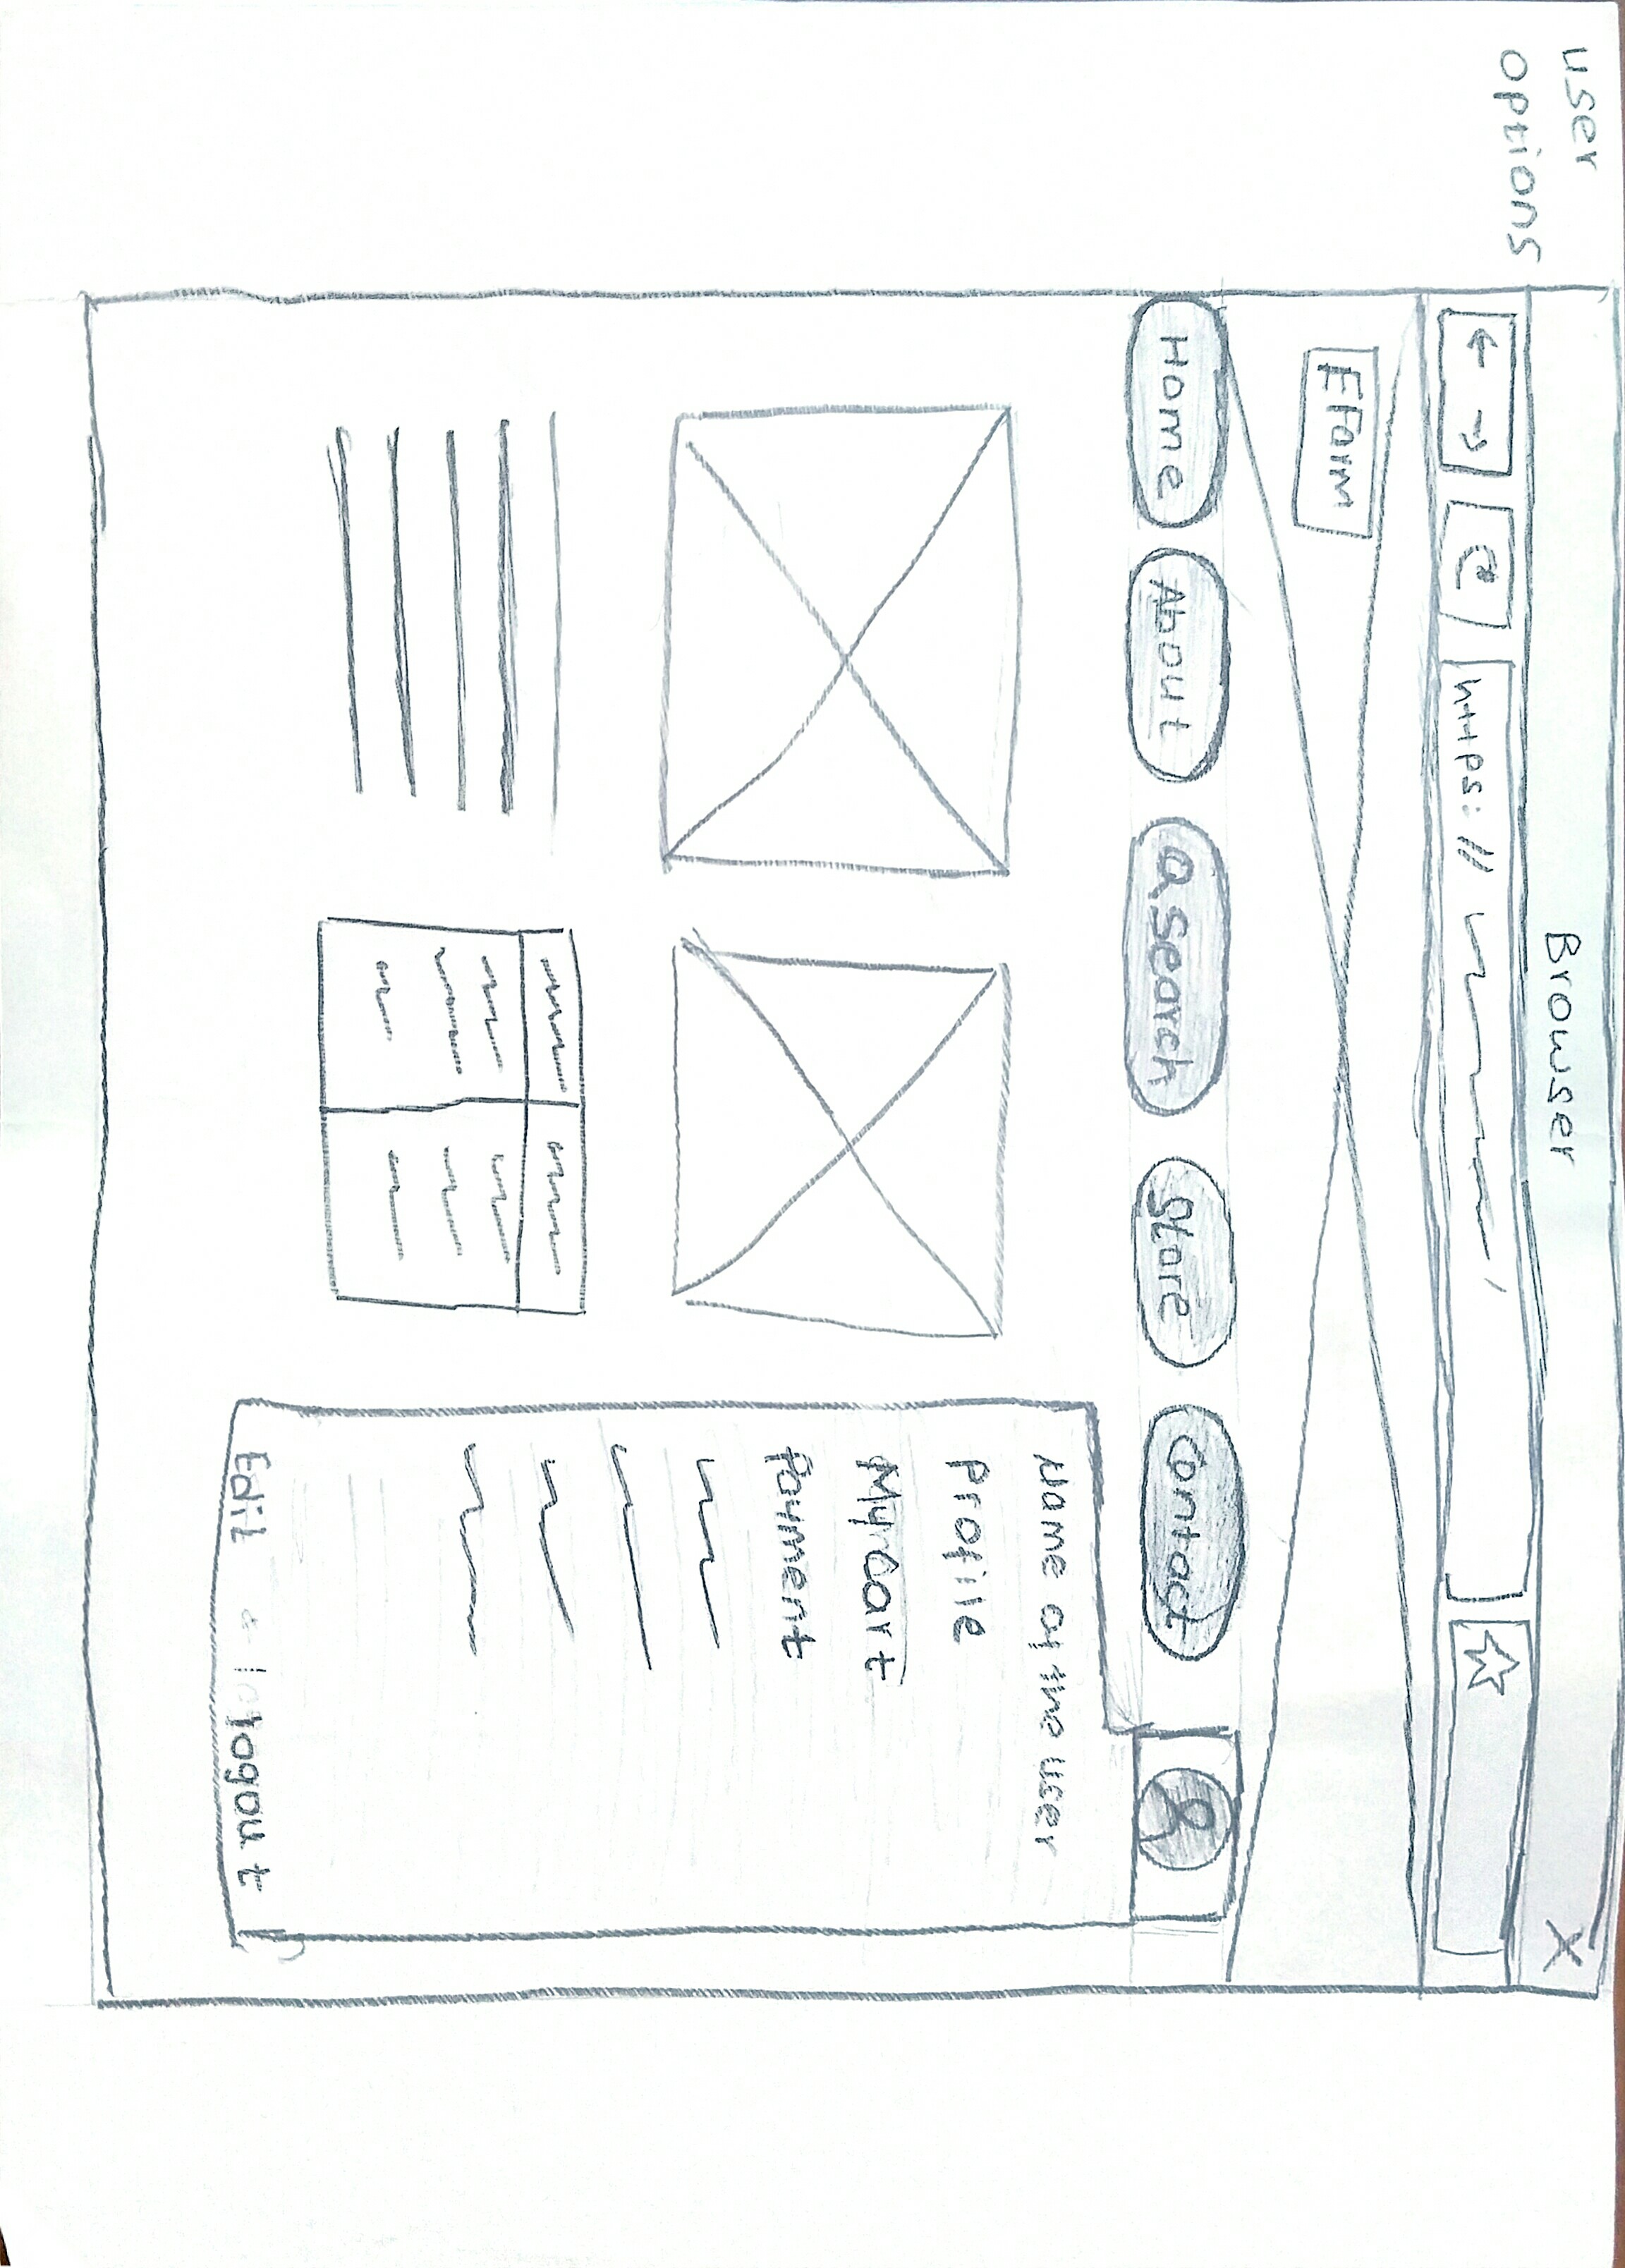 user
options
Browser X
https://
EFarm
Home About Search Store Contact
Name of the user
Profile
My Cart
Payment
Edit logout